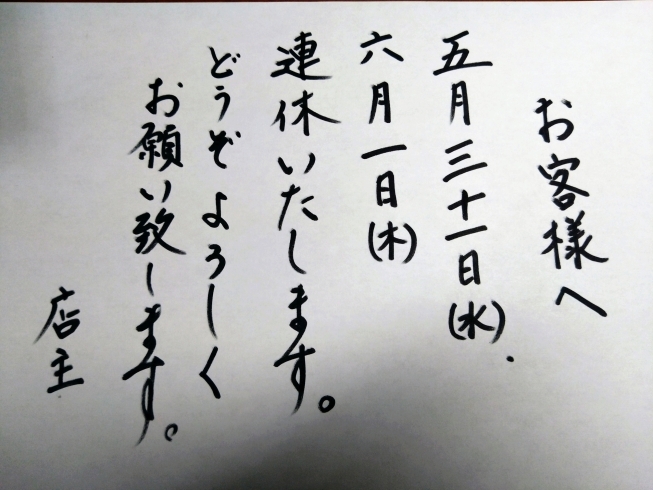 お客様へ
五月三十一日(水).
六月一日(木)
連休いたします。
どうぞよろしく
お願い致します。
店主